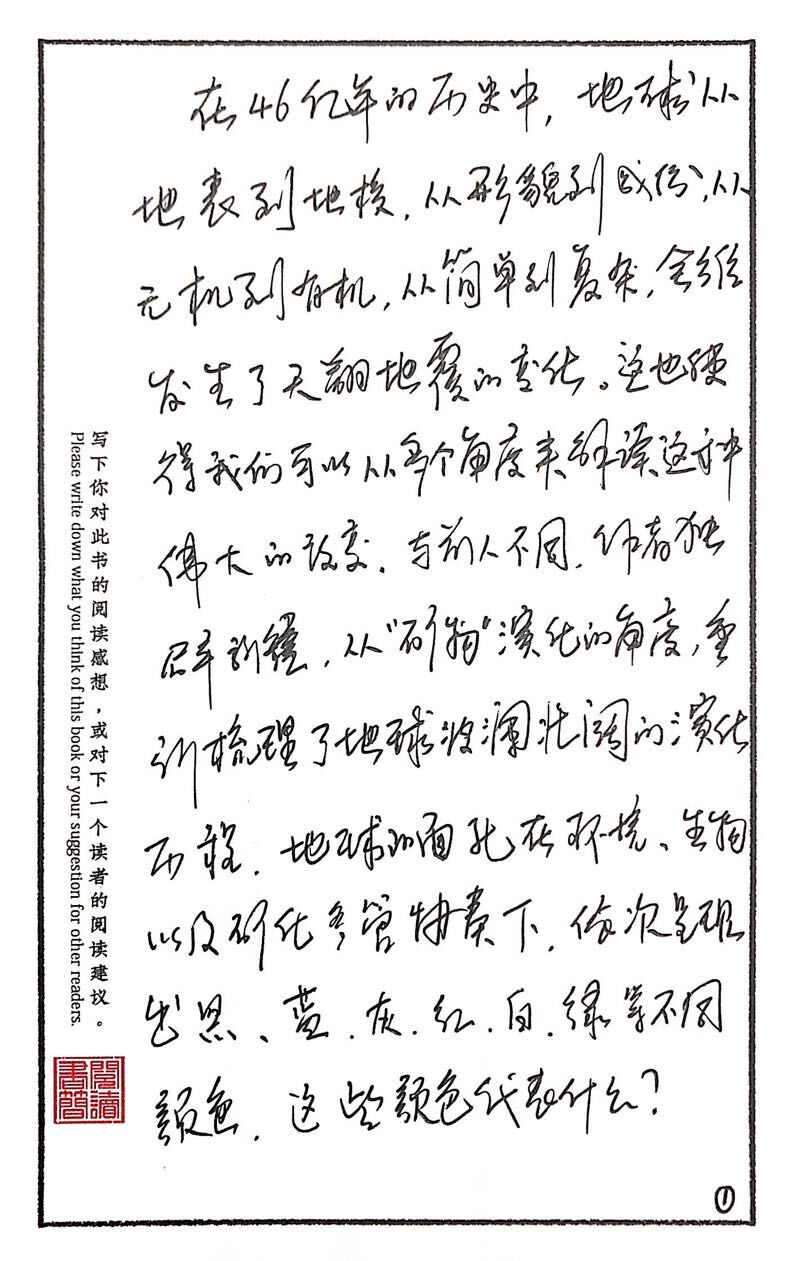 在46亿年的历史中，地球从
地表到地核，从形貌到成份，从
无机到有机，从简单到复杂，全维
发生了天翻地覆的变化。这也使
得我们可以从多个角度来解读这种
伟大的改变。与前人不同，作者独
辟新疆，从“矿物”演化的角度，重
新梳理了地球波澜壮阔的演化
历程。地球的面孔在环境、生物
以及矿化多管协奏下，依次呈现
出黑、蓝、灰、红、白、绿等不同
颜色。这些颜色代表什么？
①
写下你对此书的阅读感想，或对下一个读者的阅读建议。
Please write down what you think of this book or your suggestion for other readers.
閱讀書簡